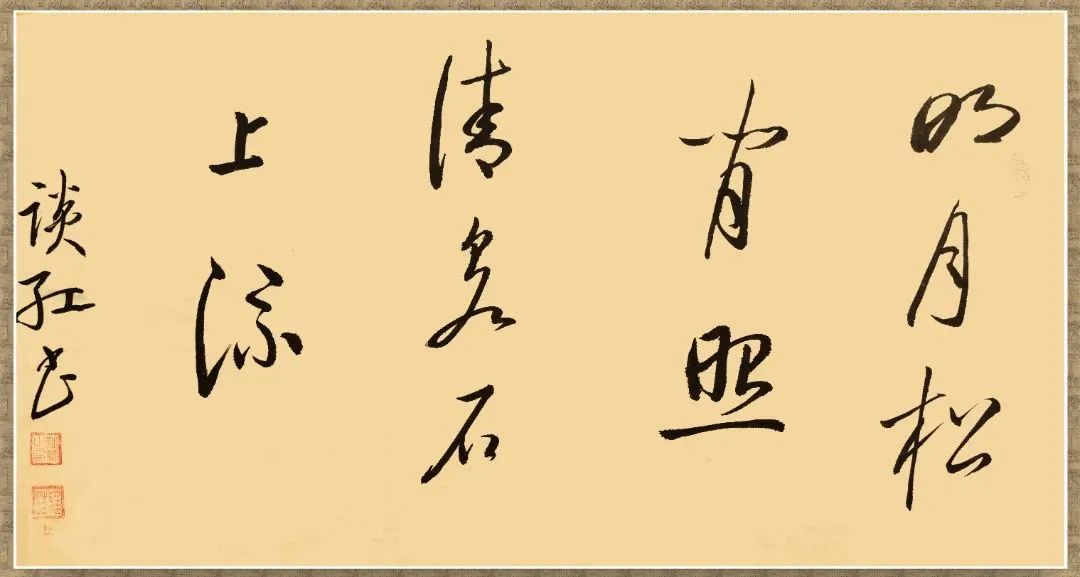 明月松
间照
清泉石
上流
谈红书